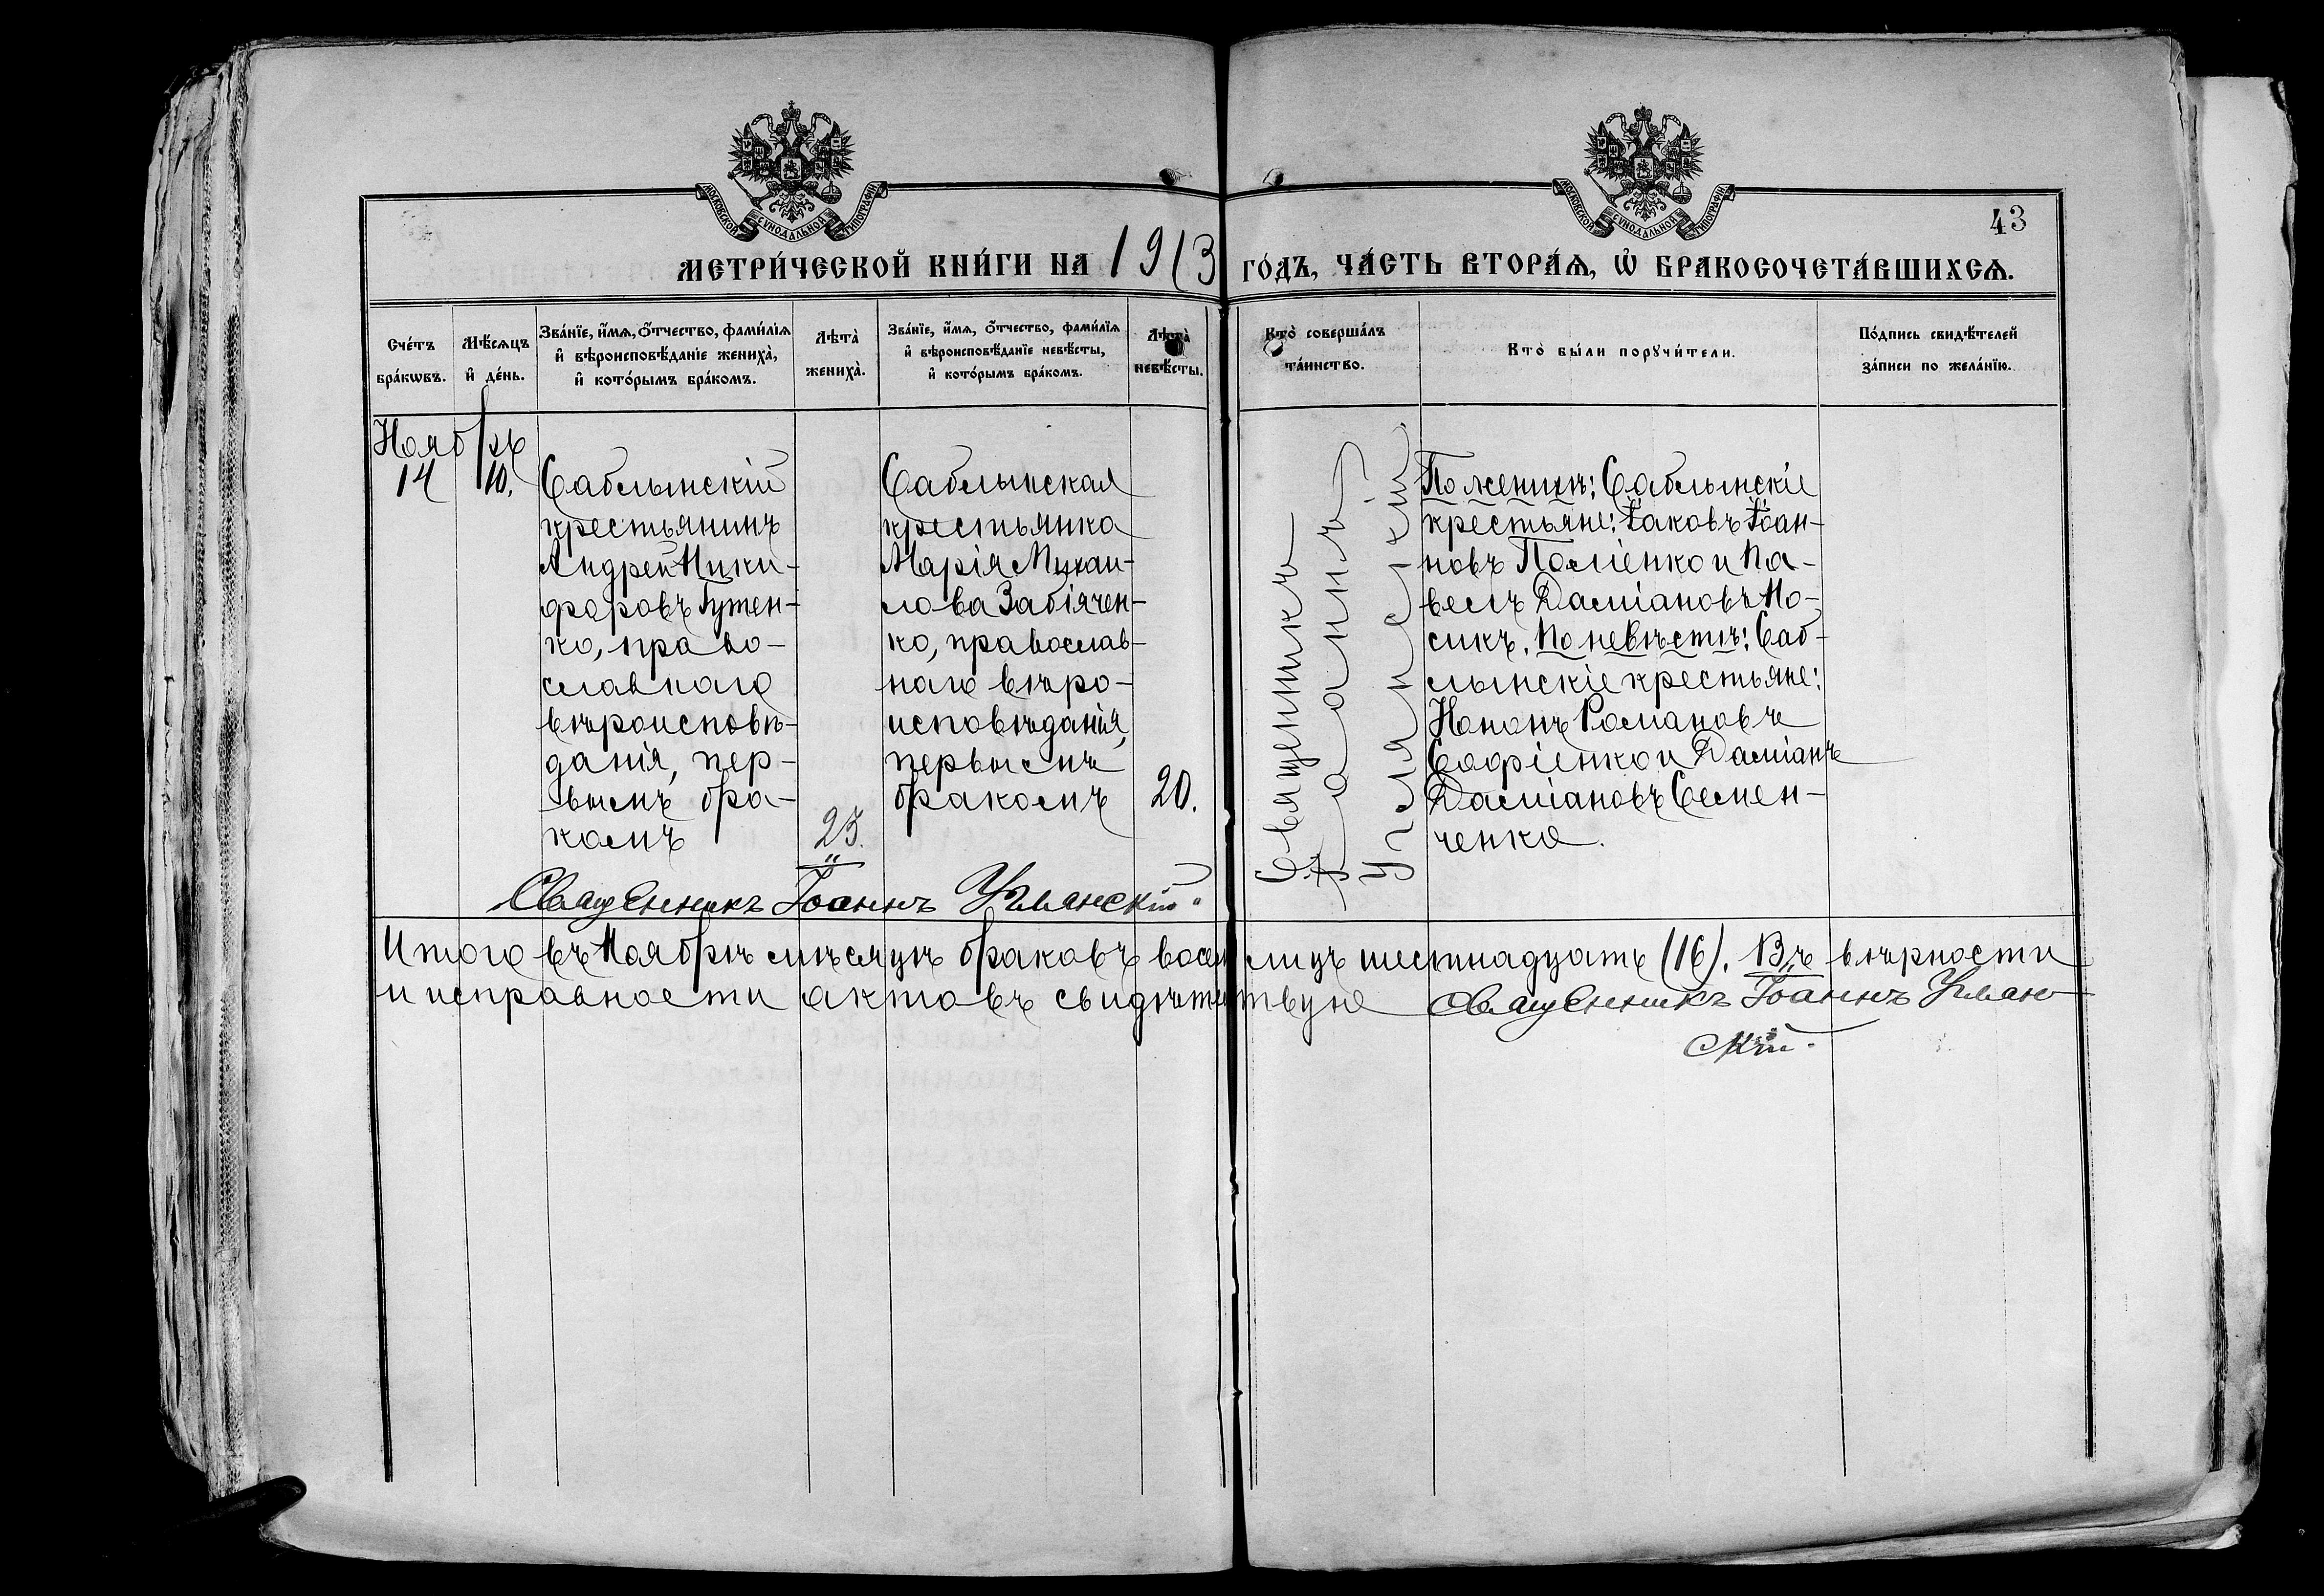 МОСКОВСКОЙ СѴНОДАЛЬНОЙ ТИПОГРАФІИ
МОСКОВСКОЙ СѴНОДАЛЬНОЙ ТИПОГРАФІИ
43
МЕТРИ́ЧЕСКОЙ КНИ́ГИ НА 1913 ГО́ДЪ, ЧА́СТЬ ВТОРА́Ѧ, Ѡ҆ БРАКОСОЧЕТА́ВШИХСѦ.
Сче́тъ бра́кѡвъ.
Мѣ́сѧцъ и҆ де́нь.
Зва́нїе, и҆́мѧ, ѻ҆́тчество, фами́лїѧ и҆ вѣроисповѣ́данїе жениха̀, и҆ кото́рымъ бра́комъ.
Лѣта̀ жениха̀.
Зва́нїе, и҆́мѧ, ѻ҆́тчество, фами́лїѧ и҆ вѣроисповѣ́данїе невѣ́сты, и҆ кото́рымъ бра́комъ.
Лѣта̀ невѣ́сты.
Кто̀ соверша́лъ та́инство.
Кто̀ бы́ли порꙋчи́тели.
По́дпись свидѣ́телей за́писи по жела́нїю.
Ноябрь
14
10.
Саблынскій
крестьянинъ
Андрей Ники-
форовъ Гутен-
ко, право-
славнаго
вѣроисповѣ-
данія, пер-
вымъ бра-
комъ
25.
Саблынская
крестьянка
Марія Михаи-
лова Забіячен-
ко, православ-
наго вѣро-
исповѣданія,
первымъ
бракомъ
20.
Священникъ
Іоаннъ
Уманскій
По женихѣ: Саблынскіе
крестьяне: Іаковъ Іоан-
новъ Поліенко и Па-
велъ Даміановъ Но-
сикъ. По невѣстѣ: Саб-
лынскіе крестьяне:
Кононъ Романовъ
Софіенко и Даміанъ
Даміановъ Семен-
ченко.
Священникъ Іоаннъ Уманскій.
Итого въ Ноябрѣ мѣсяцѣ браковъ восемь лицъ шестнадцать (16). Въ вѣрности
и исправности актовъ свидѣтельствую Священникъ Іоаннъ Уман-
скій.